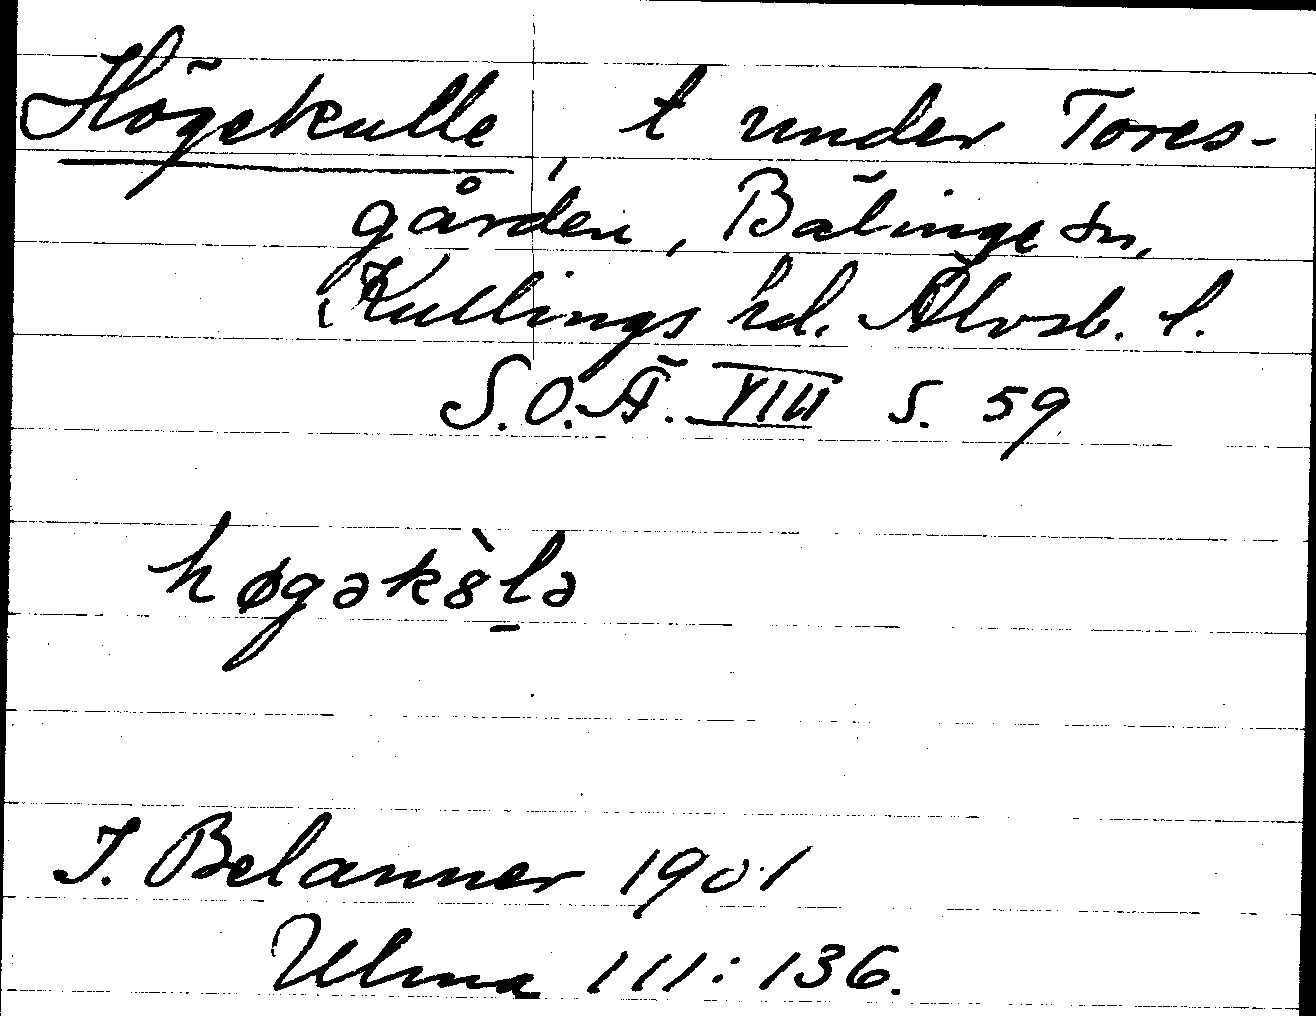 Högekulle, t under Tores-
gården, Bälinge sn,
Kullings hd. Älvsb. l.
S.O.Ä. VIII s. 59
høgək8̀lə
J. Belanner 1901
Ulma 111:136.